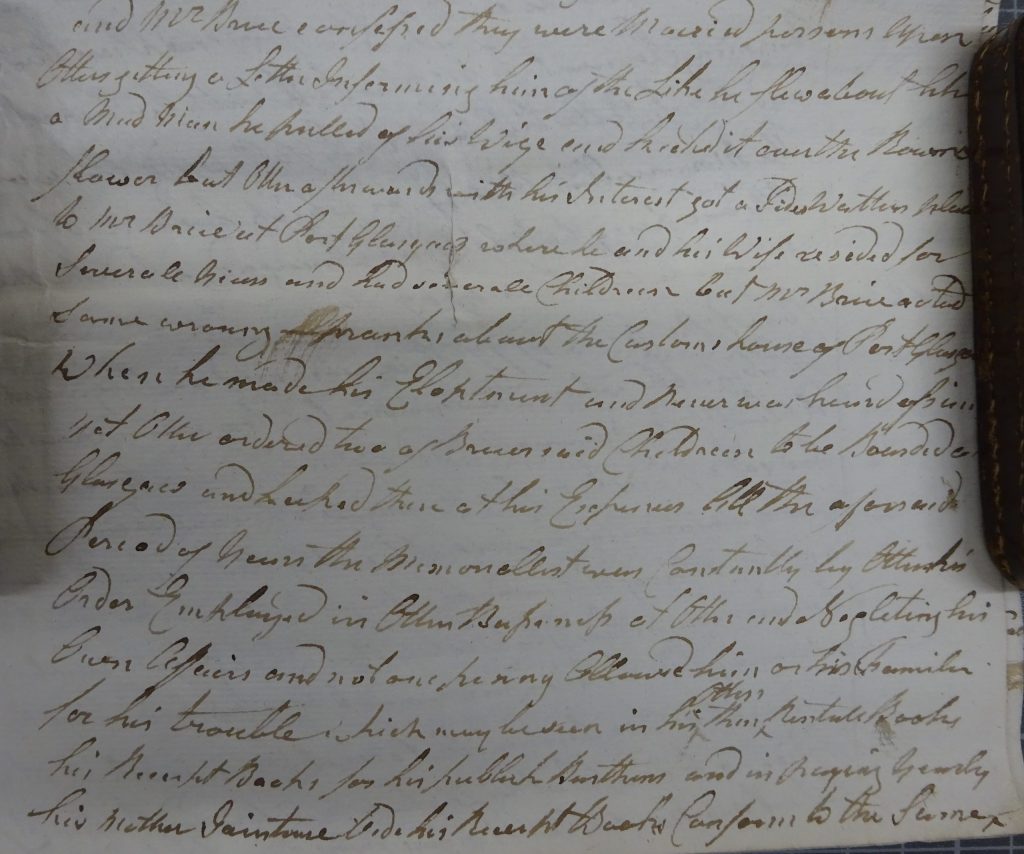 and Mr Brice confessed they were Maried persons Upon
Otter getting a Letter Informing him of the Like he flew about like
a Mad Man he pulled of his Wige and it over the
flower but Otter afterwards with his Interest got a Tides Waitters place
to Mr Brice at Port Glasgow where he and his Wife resided for
Severall Years and had severall Children but Mr Brice acted
some wrong pranks about the Customs house of Port Glasgow
Where he made his Eloptment and Never was heard of since
yet Otter ordered two of Brices said Children to be Boarded at
Glasgow and keeped them at his Expenses All the aforesaid
Period of Years the Memorellist was Constantly by Otter his
Order Employed in Otter Bussiness at Otter and Neglecting his
Owen Affairs and not one penny Allowed him or his Familie
for his trouble which may be seen in his Otters then Rentale Books
his Receipt Books for his publick Burthens and in paying Yearly
his Mother Jointoure Vide his Receipt Books Conform to the Same